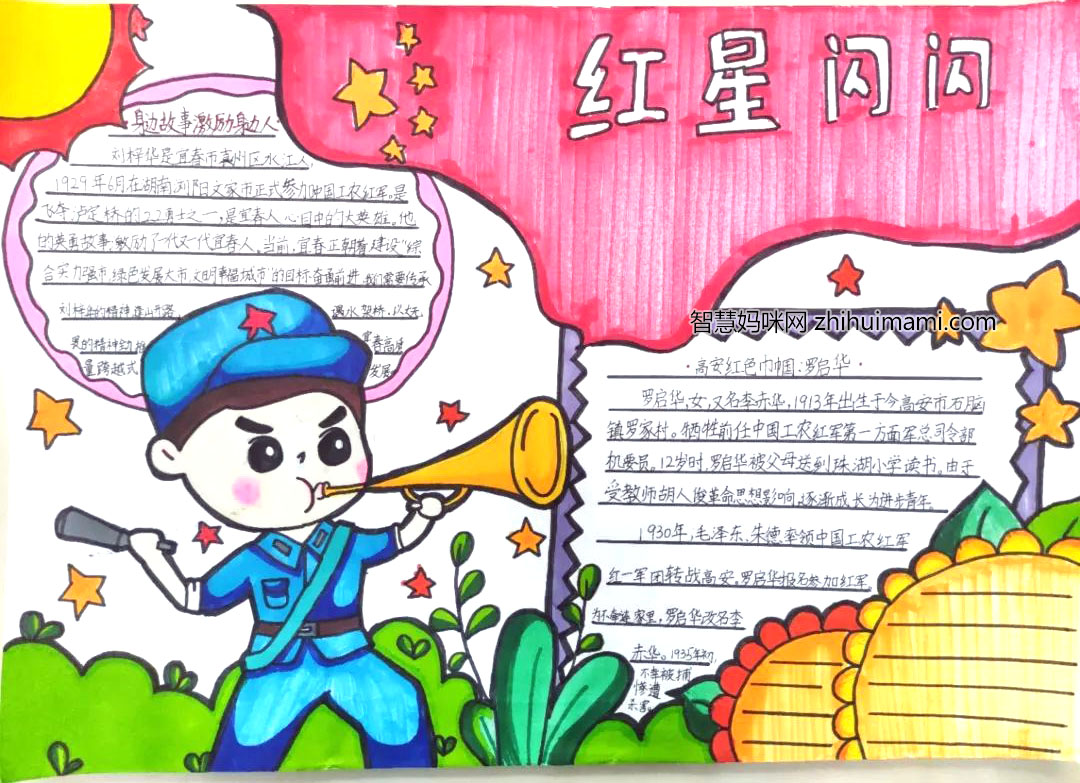 红星闪闪
身边故事激励身边人
刘梓华是宜春市袁州区水江人,
1929年6月在湖南浏阳文家市正式参加中国工农红军。是
飞夺泸定桥的22勇士之一,是宜春人心目中的大英雄。他
的英勇故事激励了一代又一代宜春人。当前,宜春正朝着建设“综
合实力强市 绿色发展大市 文明幸福城市”的目标奋勇前进,我们需要传承
刘梓华的精神逢山开路,
遇水架桥,以
美的精神动
宜春高质
量跨越式
发展
智慧妈咪网 zhihuimami.com
·高安红色巾帼:罗启华·
罗启华,女,又名李赤华,1913年出生于今高安市石脑
镇罗家村。牺牲前任中国工农红军第一方面军总司令部
机要员。12岁时,罗启华被父母送到珠湖小学读书。由于
受教师胡人俊革命思想影响,逐渐成长为进步青年。
1930年,毛泽东、朱德率领中国工农红军
红一军团转战高安。罗启华报名参加红军
为不牵连家里,罗启华改名李
赤华。1935年初,
不幸被捕
惨遭
杀害。